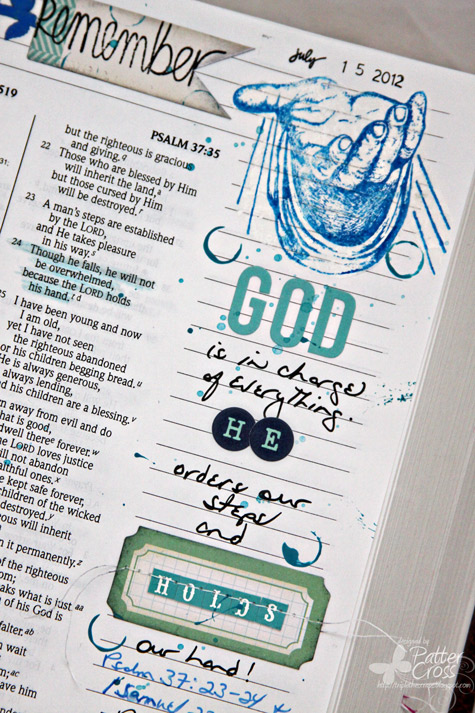 Remember
July 15 2012
519
PSALM 37:35
but the righteous is gracious
and giving.q
22 Those who are blessed by Him
will inherit the land,a
but those cursed by Him
will be destroyed.r
23 A man's steps are established
by the LORD,
and He takes pleasure
in his way.s
24 Though he falls, he will not
be overwhelmed,
because the LORD holds
his hand.t d
25 I have been young and now
I am old,
yet I have not seen
the righteous abandoned
or his children begging bread.u
He is always generous,
always lending,
and his children are a blessing.v
away from evil and do
what is good,
dwell there forever.w
the LORD loves justice
will not abandon
faithful ones.x
are kept safe forever,
children of the wicked
destroyed.y
will inherit
it permanently.z
of the righteous
aks what is just aa
of his God is
falter.ab
wait
ac
have him
GOD
is in charge
of everything.
HE
orders our
steps
and
HOLDS
our hand!
Psalm 37:23-24 &
designed by
Patter
Cross